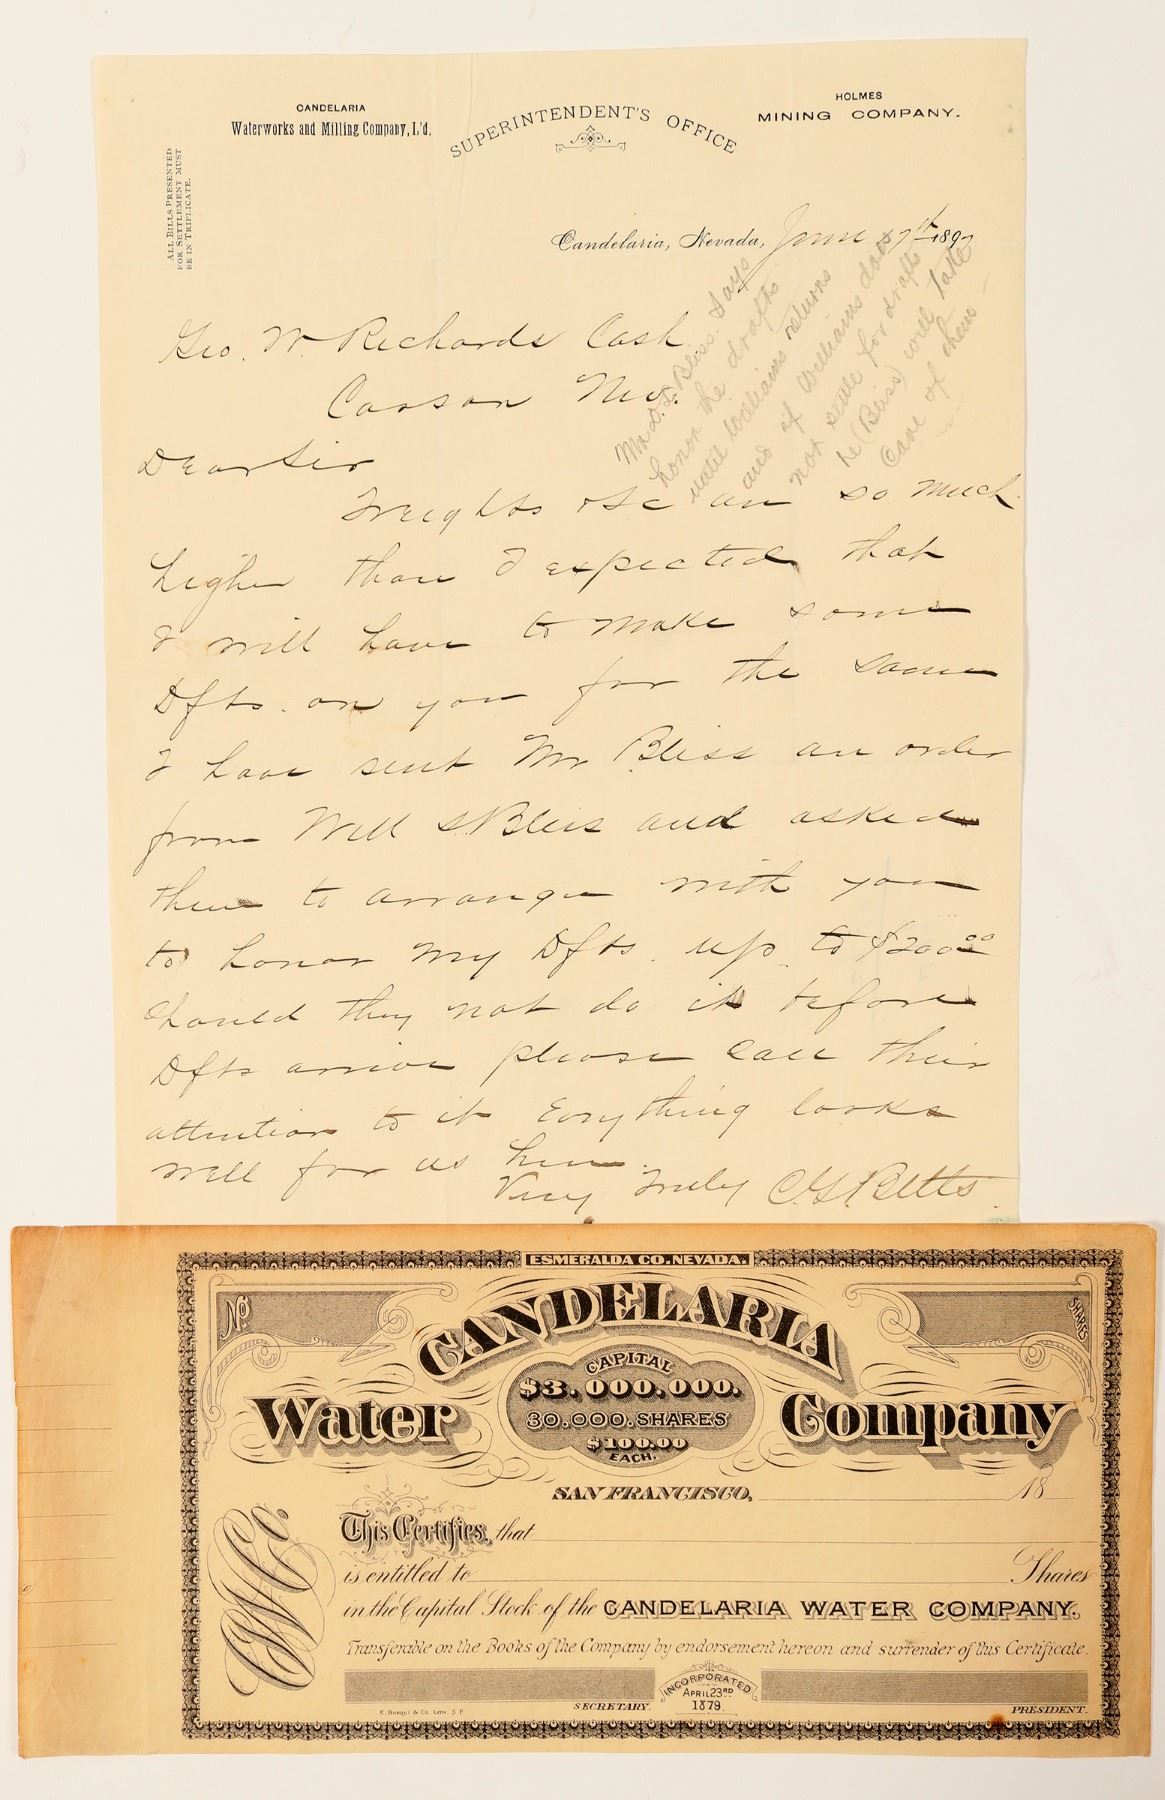 CANDELARIA
Waterworks and Milling Company, L'd.
SUPERINTENDENT'S OFFICE
HOLMES
MINING COMPANY.
ALL BILLS PRESENTED
FOR SETTLEMENT MUST
BE IN TRIPLICATE.
Candelaria, Nevada, June 7th 1897
Geo. W. Richards Cash
Carson Nev.
Dear Sir
Mr D. L Bliss. Says
honor the drafts
until Williams returns
and if Williams does
not settle for drafts
he (Bliss) will take
Care of them -
Freights &c are so much
higher than I expected that
I will have to make some
Dfts. on you for the same
I have sent Mr Bliss an order
from Will & Bliss and asked
them to arrange with you
to honor my Dfts. up to $200.00
Should they not do it before
Dfts arrive please call their
attention to it Everything looks
well for us here.
Very Truly C. G. Betts
ESMERALDA CO. NEVADA.
No.
SHARES
CANDELARIA
Water Company
CAPITAL
$3.000.000.
30.000. SHARES
$100.00
EACH.
SAN FRANCISCO, 18
CWCo.
This Certifies, that
is entitled to Shares
in the Capital Stock of the CANDELARIA WATER COMPANY.
Transferable on the Books of the Company by endorsement hereon and surrender of this Certificate.
INCORPORATED
APRIL 23RD
1879
SECRETARY.
PRESIDENT.
E. Bosqui & Co. Lith. S.F.